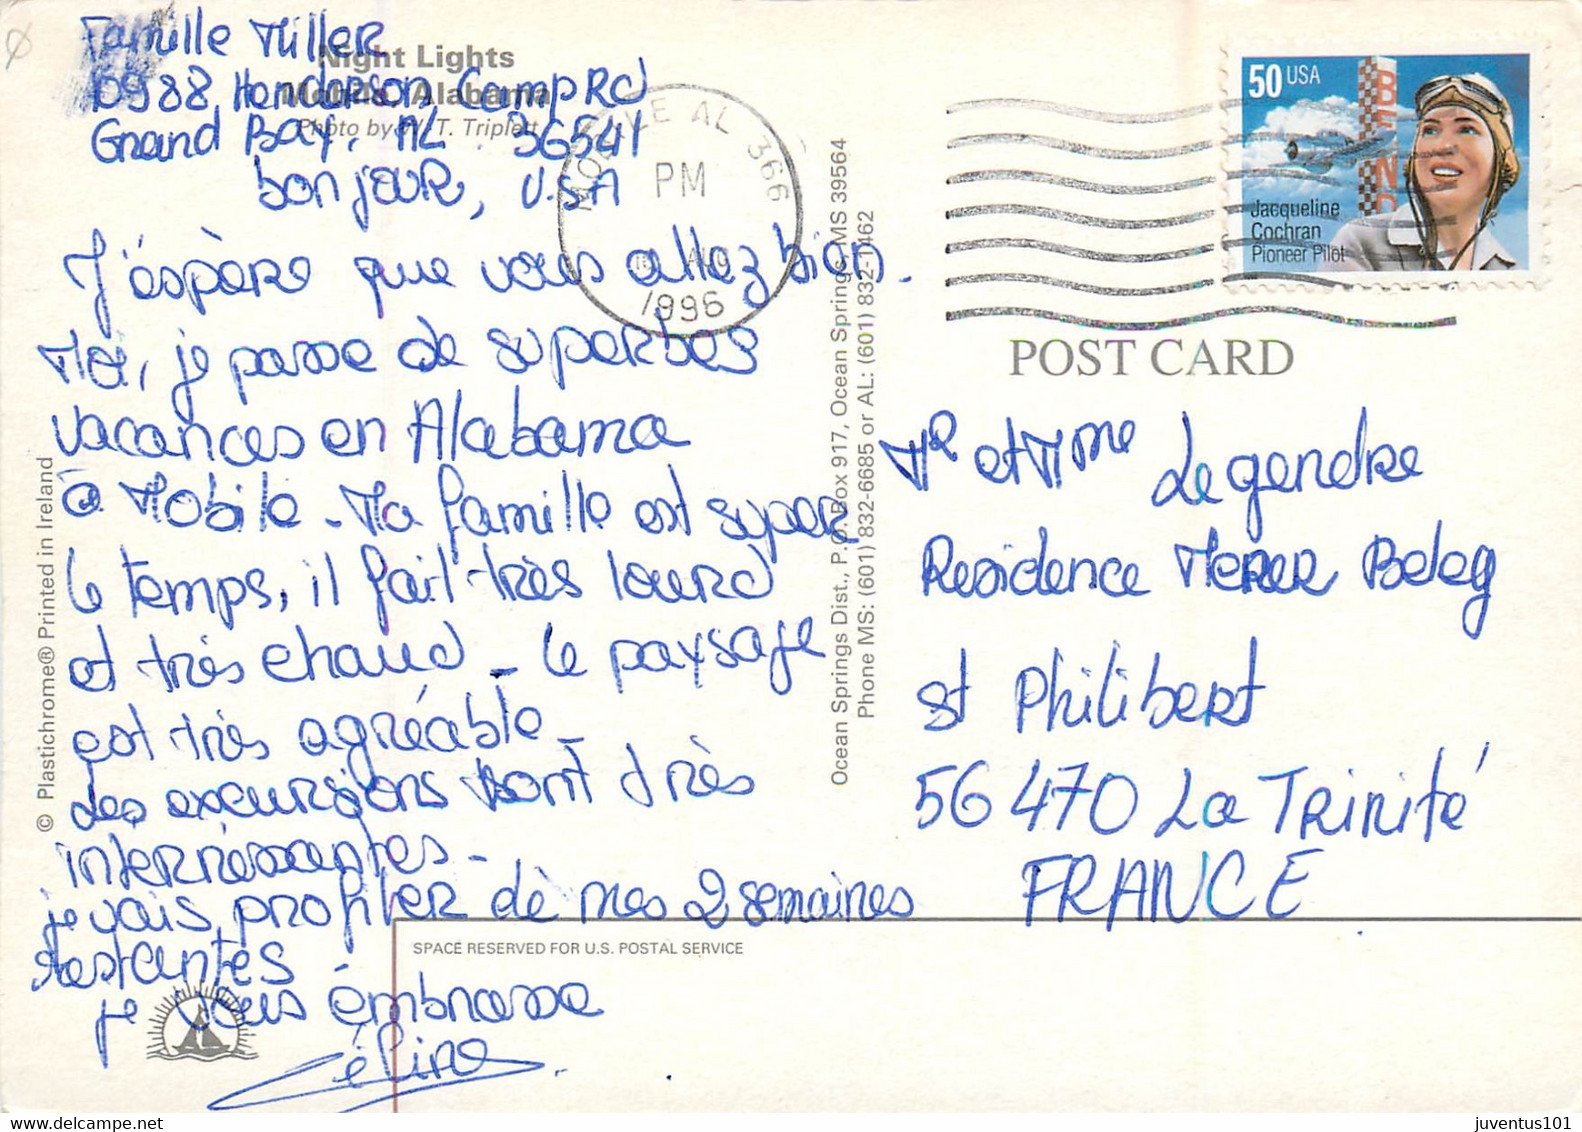 Famille Miller
10988 Henderson Camp Rd
Grand Bay, AL. 36541
bonjour, U.S.A
Night Lights
Mobile, Alabama
Photo by W. T. Triplett
J'éspère que vous allez bien.
Moi, je passe de superbes
vacances en Alabama
à Mobile - Ma famille est super
le temps, il fait très lourd
et très chaud - le paysage
est très agréable -
Les excursions sont très
interréssantes -
je vais profiter de mes 2 semaines
restantes
je vous émbrasse
Céline
© Plastichrome® Printed in Ireland
Ocean Springs Dist., P.O. Box 917, Ocean Springs, MS 39564
Phone MS: (601) 832-6685 or AL: (601) 832-1462
MOBILE AL 366
PM
AUG
1996
50 USA
BEND
Jacqueline
Cochran
Pioneer Pilot
POST CARD
Mr et Mme Legendre
Residence Merer Beleg
St Philibert
56 470 La Trinité
FRANCE
SPACE RESERVED FOR U.S. POSTAL SERVICE
juventus101